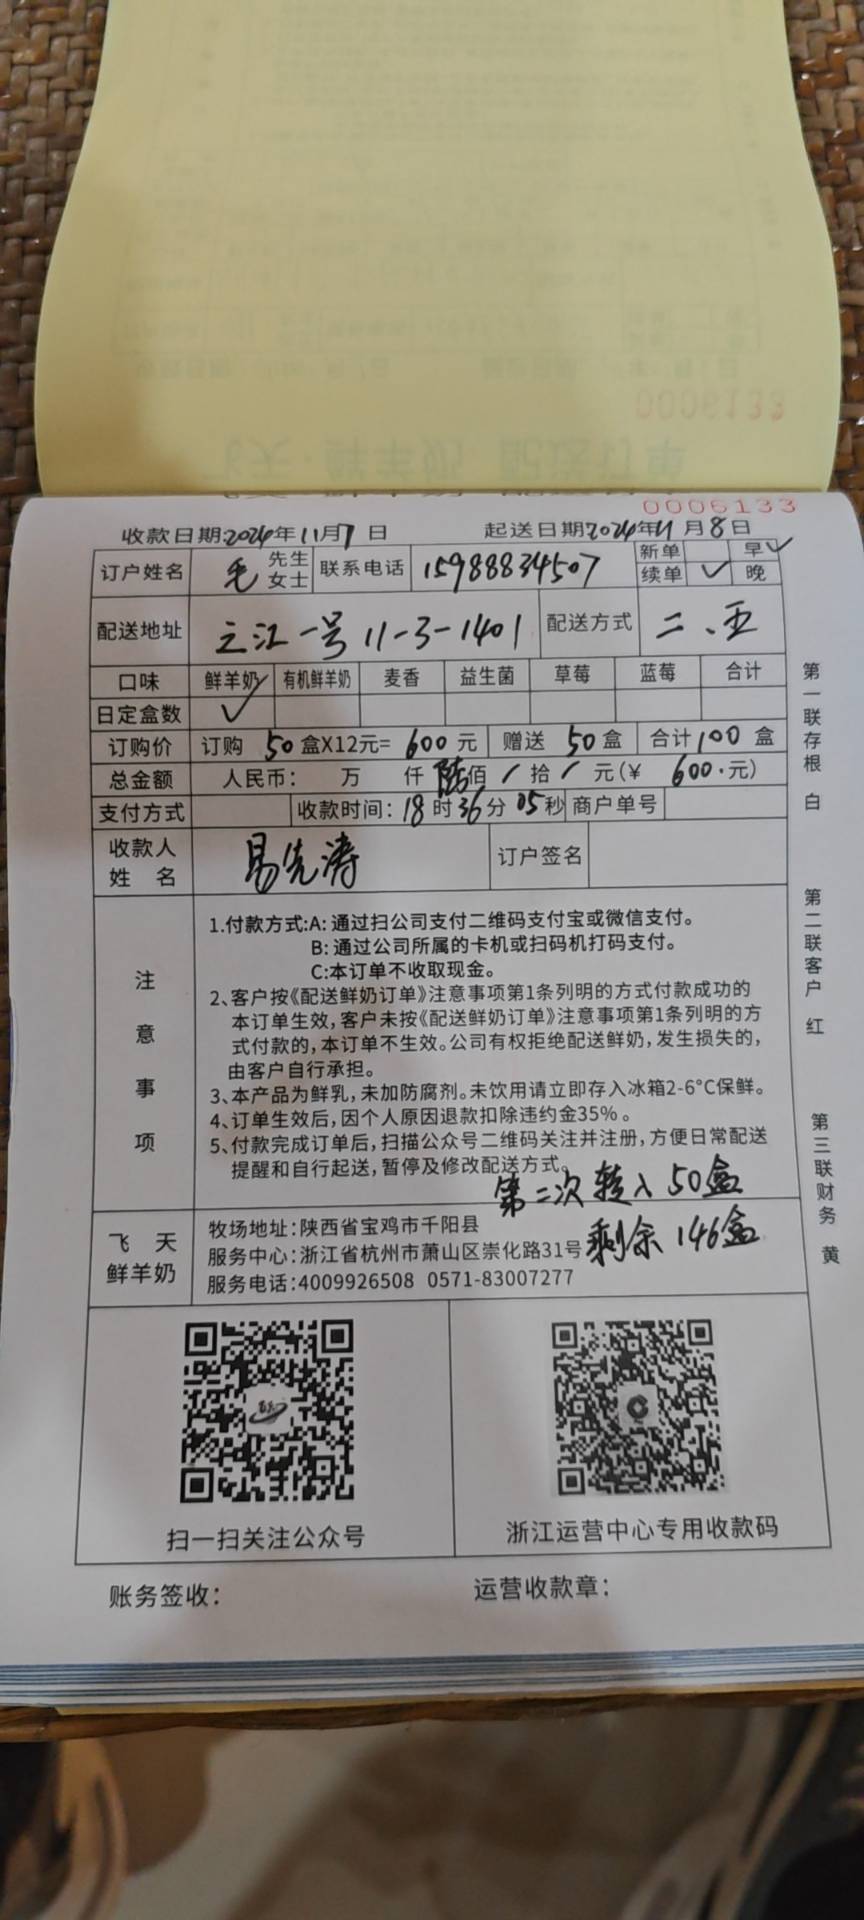 0006133
收款日期:2024年11月7日 起送日期2024年11月8日
订户姓名 毛 先生 女士 联系电话 15988834507 新单 早✓
续单 ✓ 晚
配送地址 之江一号 11-3-1401 配送方式 二、五
口味 鲜羊奶 有机鲜羊奶 麦香 益生菌 草莓 蓝莓 合计
日定盒数 ✓
订购价 订购 50 盒X12元= 600 元 赠送 50 盒 合计 100 盒
总金额 人民币: 万 仟 陆佰 / 拾 / 元(¥ 600.元)
支付方式 收款时间: 18时36分05秒 商户单号
收款人 姓 名 易先涛 订户签名
注意事项
1.付款方式:A: 通过扫公司支付二维码支付宝或微信支付。
B: 通过公司所属的卡机或扫码机打码支付。
C:本订单不收取现金。
2、客户按《配送鲜奶订单》注意事项第1条列明的方式付款成功的
本订单生效,客户未按《配送鲜奶订单》注意事项第1条列明的方
式付款的,本订单不生效。公司有权拒绝配送鲜奶,发生损失的,
由客户自行承担。
3、本产品为鲜乳,未加防腐剂。未饮用请立即存入冰箱2-6°C保鲜。
4、订单生效后,因个人原因退款扣除违约金35%。
5、付款完成订单后,扫描公众号二维码关注并注册,方便日常配送
提醒和自行起送,暂停及修改配送方式。
第二次转入50盒
剩余146盒
飞 天
鲜羊奶
牧场地址:陕西省宝鸡市千阳县
服务中心:浙江省杭州市萧山区崇化路31号
服务电话:4009926508 0571-83007277
扫一扫关注公众号
浙江运营中心专用收款码
账务签收: 运营收款章:
第一联存根 白
第二联客户 红
第三联财务 黄